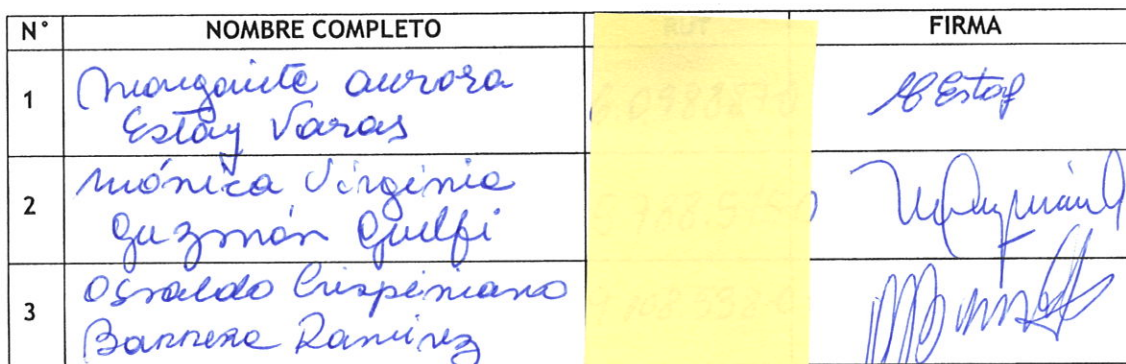 N° NOMBRE COMPLETO RUT FIRMA
1 Margarita Aurora
Estay Varas
M Estay
2 Mónica Virginia
Guzmán Guelfi
3 Osvaldo Crispiniano
Barrera Ramírez